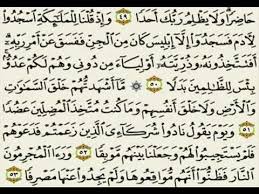 حَاضِرًا ۗ وَلَا يَظْلِمُ رَبُّكَ أَحَدًا ٤٩ وَإِذْ قُلْنَا لِلْمَلَٰٓئِكَةِ ٱسْجُدُوا۟
لِءَادَمَ فَسَجَدُوٓا۟ إِلَّآ إِبْلِيسَ كَانَ مِنَ ٱلْجِنِّ فَفَسَقَ عَنْ أَمْرِ رَبِّهِۦٓ ۗ
أَفَتَتَّخِذُونَهُۥ وَذُرِّيَّتَهُۥٓ أَوْلِيَآءَ مِن دُونِى وَهُمْ لَكُمْ عَدُوٌّۢ ۚ
بِئْسَ لِلظَّٰلِمِينَ بَدَلًا ٥٠ ۞ مَّآ أَشْهَدتُّهُمْ خَلْقَ ٱلسَّمَٰوَٰتِ
وَٱلْأَرْضِ وَلَا خَلْقَ أَنفُسِهِمْ وَمَا كُنتُ مُتَّخِذَ ٱلْمُضِلِّينَ عَضُدًا
٥١ وَيَوْمَ يَقُولُ نَادُوا۟ شُرَكَآءِىَ ٱلَّذِينَ زَعَمْتُمْ فَدَعَوْهُمْ
فَلَمْ يَسْتَجِيبُوا۟ لَهُمْ وَجَعَلْنَا بَيْنَهُم مَّوْبِقًا ٥٢ وَرَءَا ٱلْمُجْرِمُونَ
ٱلنَّارَ فَظَنُّوٓا۟ أَنَّهُم مُّوَاقِعُوهَا وَلَمْ يَجِدُوا۟ عَنْهَا مَصْرِفًا ٥٣